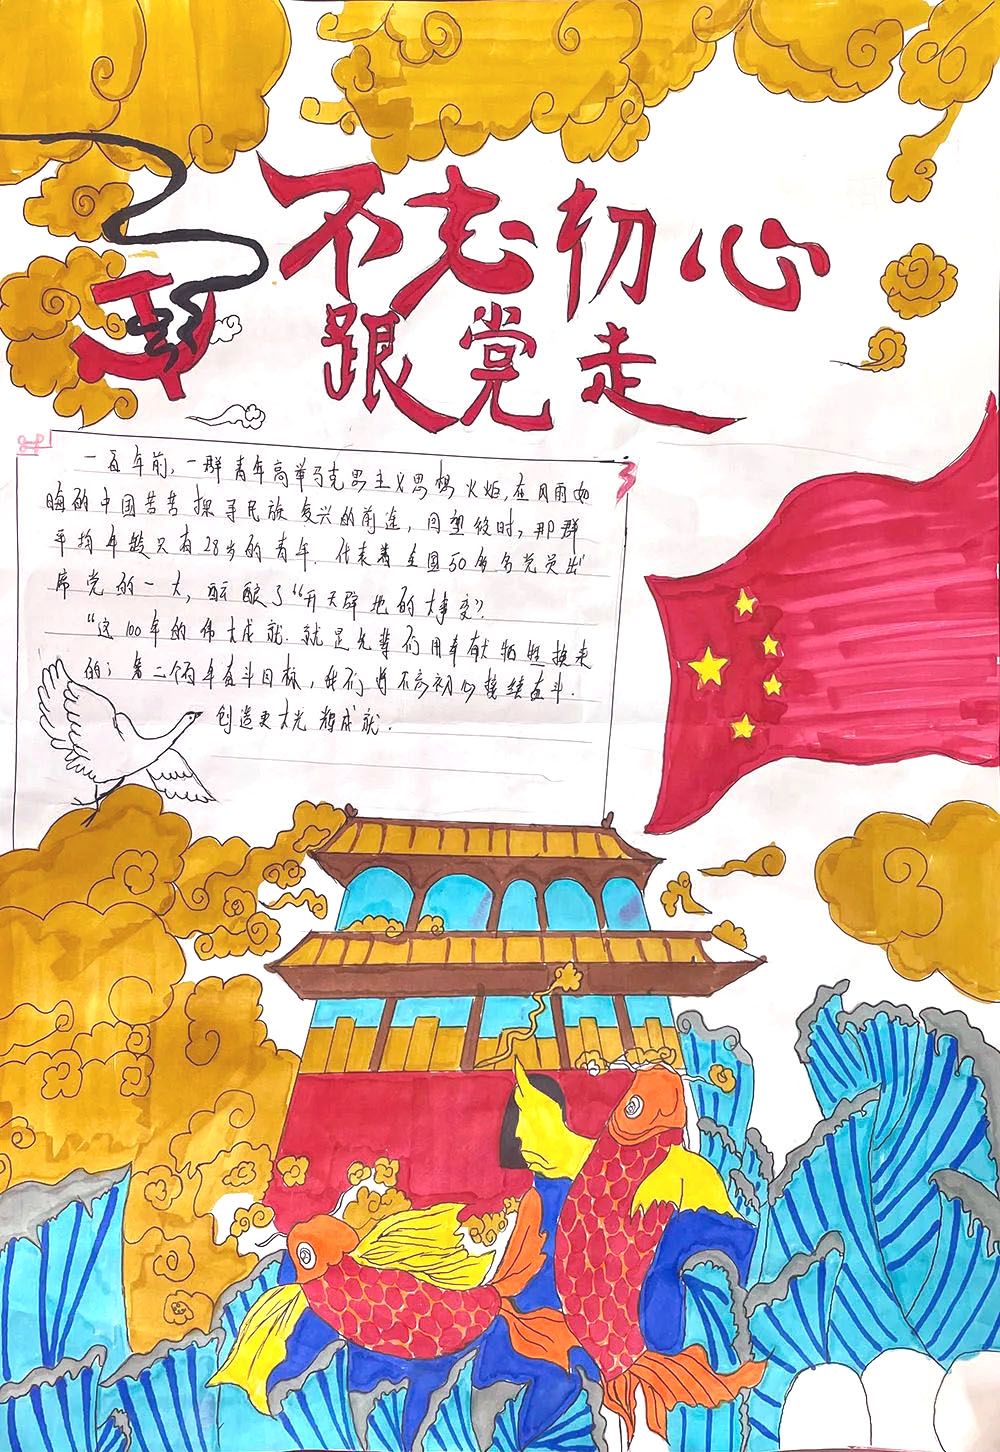 不忘初心
跟党走
一百年前,一群青年高举马克思主义思想火炬,在风雨如
晦的中国苦苦探寻民族复兴的前途,回望彼时,那群
平均年龄只有28岁的青年.代表着全国50多名党员出
席党的一大,酝酿了“开天辟地的大事变”
“这100年的伟大成就.就是先辈们用奉献牺牲换来
的;第二个百年奋斗目标,我们将不忘初心接续奋斗.
创造更大光辉成就.